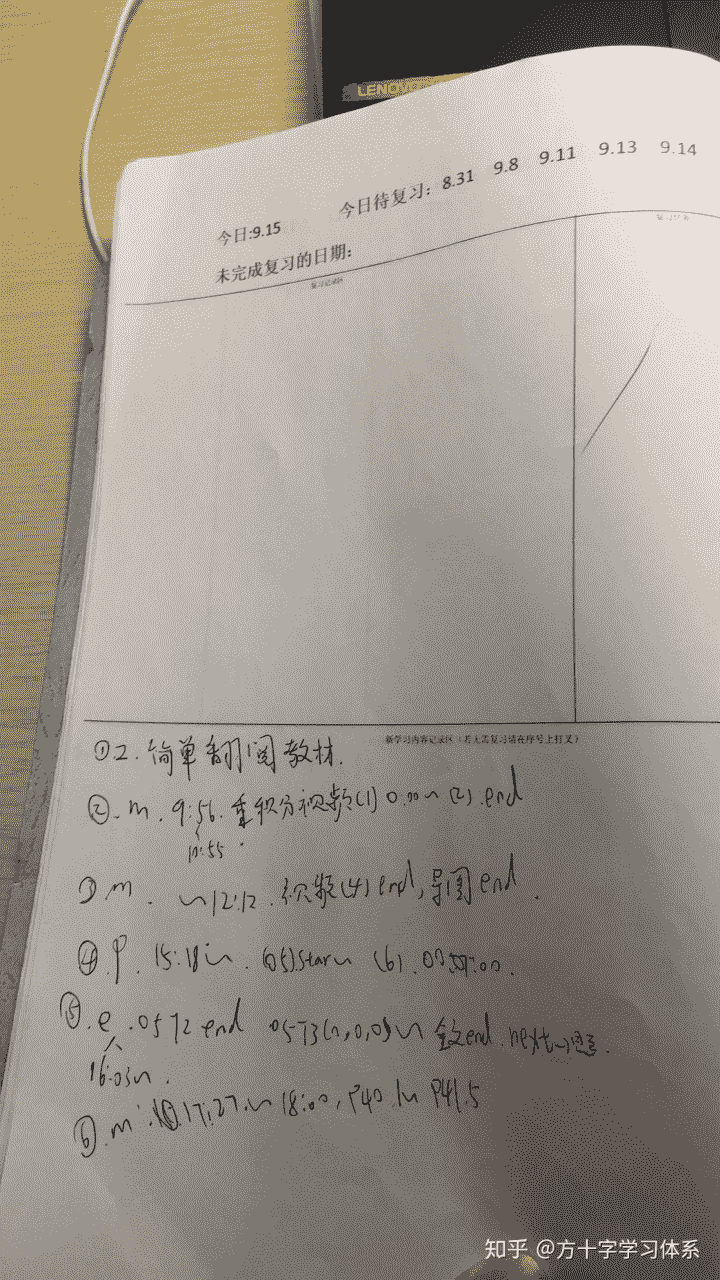 LENOVO
今日:9.15 今日待复习: 8.31 9.8 9.11 9.13 9.14
未完成复习的日期:
复习记录区
新学习内容记录区(若无需复习请在序号上打叉)
① 工. 简单翻阅教材.
② m. 9:56. 重积分视频(1) 0.00~(2).end
10:55
③ m. ~12:12. 视频(4) end, 导图 end.
④ P. 15:18~. (05)star~ (6).
⑤ e. 0572 end 0573(1,0,0)~ 全文end. next~
16:03~.
⑥ m. 17:27~18:00, P40 ~ P41.5
知乎 @方十字学习体系